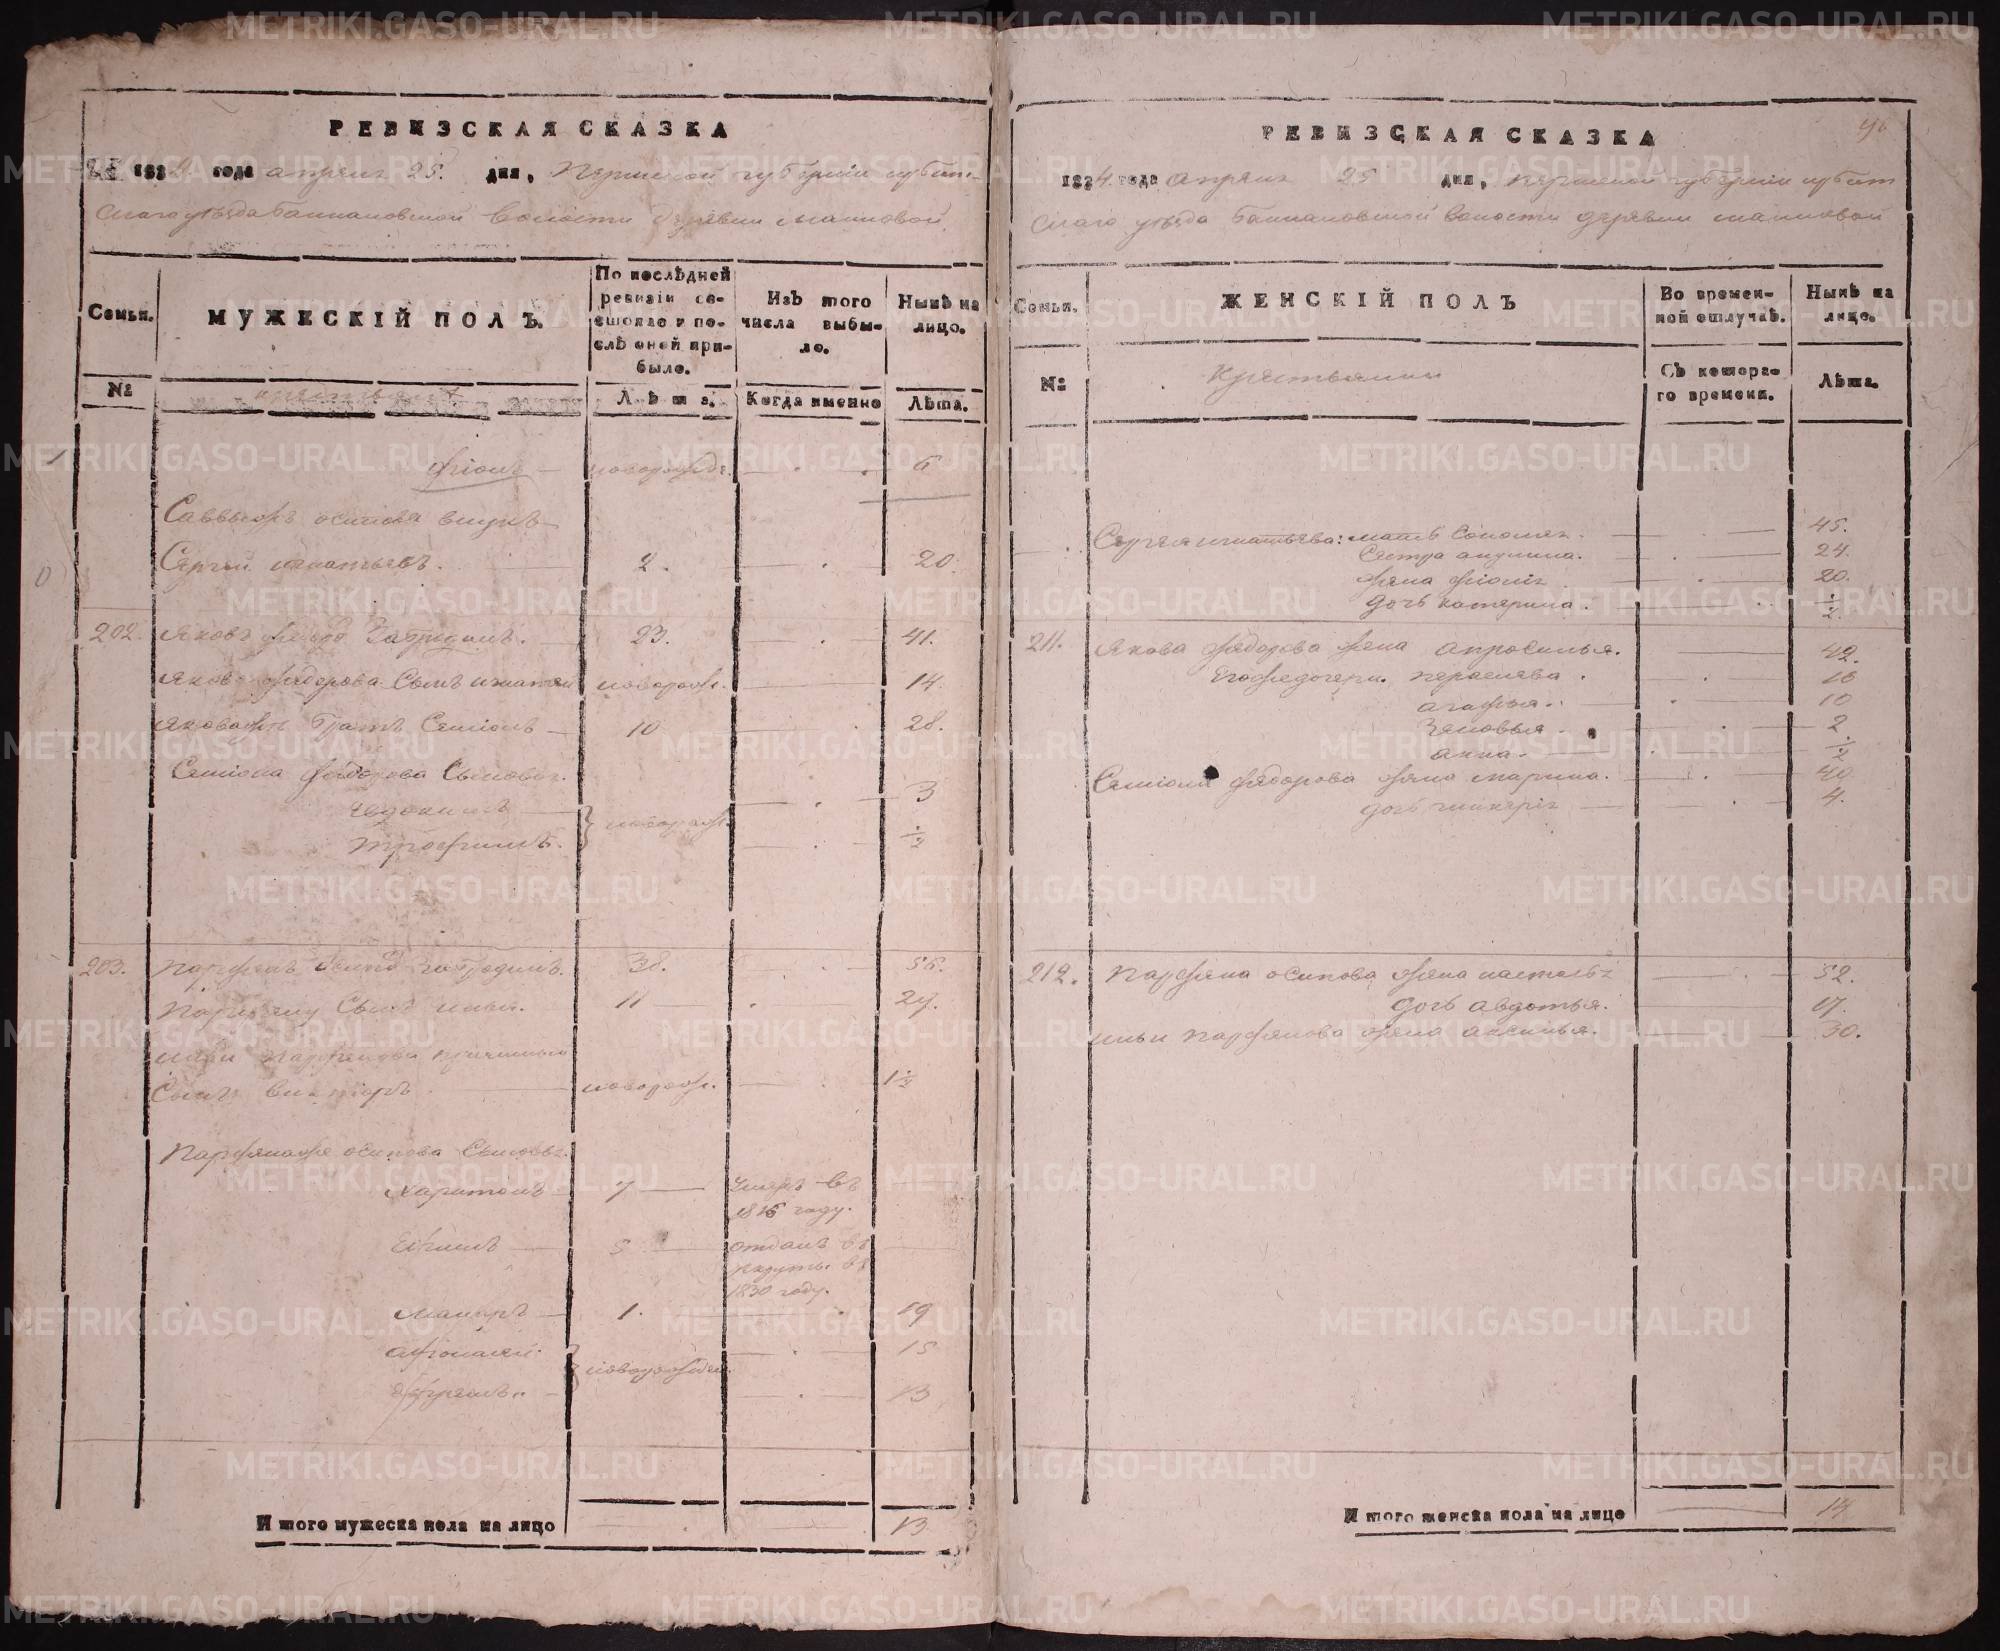 РЕВИЗСКАЯ СКАЗКА
1834 года апреля 25. дня, Пермской губернии Ирбит-
скаго уезда Баннановской волости деревни
Семьи.
МУЖЕСКІЙ ПОЛЪ.
По послѣдней ревизіи состояло и послѣ оной прибыло.
Изъ того числа выбыло.
Нынѣ на лицо.
№
крестьяне
Лѣта.
Когда именно
Лѣта.
новорожд. 6
Савватѣя осипова внукъ
Сергей игнатьевъ. 2. 20.
202. Яковъ 23. 41.
Яков федорова сынъ игнатей новорож. 14.
Якова братъ Семіонъ 10 28.
Семіона федорова сыновья.
евдокимъ 3
новорож.
трофимъ. ½
203. Парфенъ 38. 56.
Парфену сынъ илья. 11 29.
ильи парфенова
сынъ викторъ новорож. 1½
Парфена осипова сыновья
харитонъ 7 умеръ въ
1816 году.
ефимъ 5 отданъ въ
рекруты въ
1830 году.
макаръ 1. 19
афонасей. 15
новорожден.
ефремъ. 13
Итого мужеска пола на лицо 13
РЕВИЗСКАЯ СКАЗКА
1834 года апреля 25 дня, Пермской губернии Ирбит
скаго уезда Баннановской волости деревни
Семьи.
ЖЕНСКІЙ ПОЛЪ
Во временной отлучкѣ.
Нынѣ на лицо.
№
Крестьянки
Съ котораго времени.
Лѣта.
Сергея игнатьева: мать Соломея. 45.
Сестра акулина. 24.
жена 20.
дочь катерина. ½
211. Якова федорова жена апросинья. 42.
Его же дочери. 16
агафья. 10
Зеновья. 2.
анна. ½
Семіона федорова жена марина. 40
дочь гликерія 4.
212. Парфена осипова жена настасья 52.
дочь авдотья. 17.
ильи парфенова жена аксинья. 30.
Итого женска пола на лице 14
METRIKI.GASO-URAL.RU